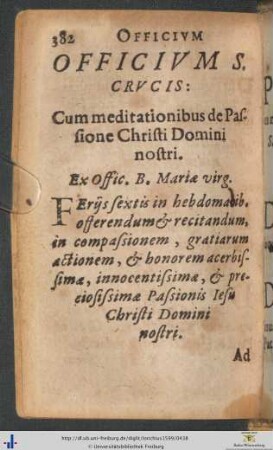 382 OFFICIVM
OFFICIVM S.
CRVCIS:
Cum meditationibus de Pas-
sione Christi Domini
nostri.
Ex Offic. B. Mariæ virg.
FErijs sextis in hebdomadib.
offerendum & recitandum,
in compassionem, gratiarum
actionem, & honorem acerbis-
simæ, innocentissimæ, & pre-
ciosissimæ Passionis Iesu
Christi Domini
nostri.
Ad
© Universitätsbibliothek Freiburg